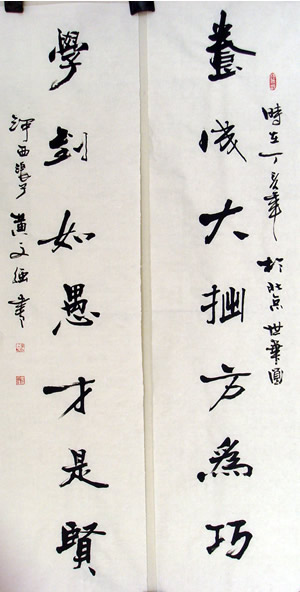 時在丁亥年於北京世華園
養成大拙方為巧
學到如愚才是賢
黃文强書